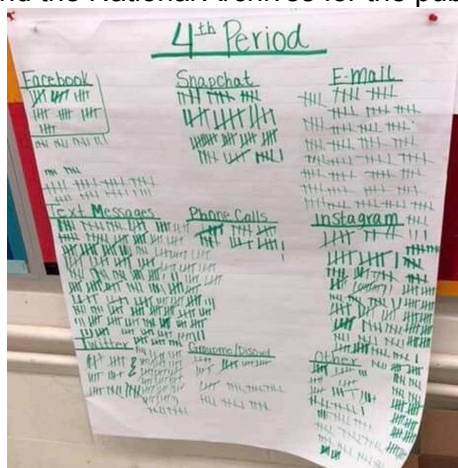 and the National Archives for the pub
4th Period
Facebook
Snapchat
E-mail
Text Messages
Phone Calls
Instagram
Twitter
Groupme/Discord
Other